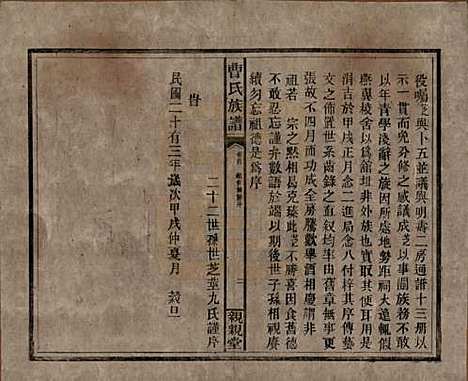 役囑茂與卜五並議與明壽二房通譜十三冊以
示一貫而免分修之感議成茂以事關族務不敢
以年青學淺辭之族因所處地勢距祠大遠輒假
燕翼後舍以爲舘垣非外族也實取其便耳用是
涓吉於甲戌正月念二進局念八付梓其序傳藝
文之佈置世系齒錄之直叙均率由舊章無事更
張故不四月而功成全房騰歡舉酒相慶謂非
祖若 宗之默相曷克臻此茂不勝喜因食舊德
不敢忘忍謹弁數語於端以期後世子孫相視賡
續勿忘祖德是爲序
旹
民國二十有三年歲次甲戌仲夏月 穀旦
二十二世孫世芝茂九氏謹序
曹氏族譜
卷首
二
親親堂